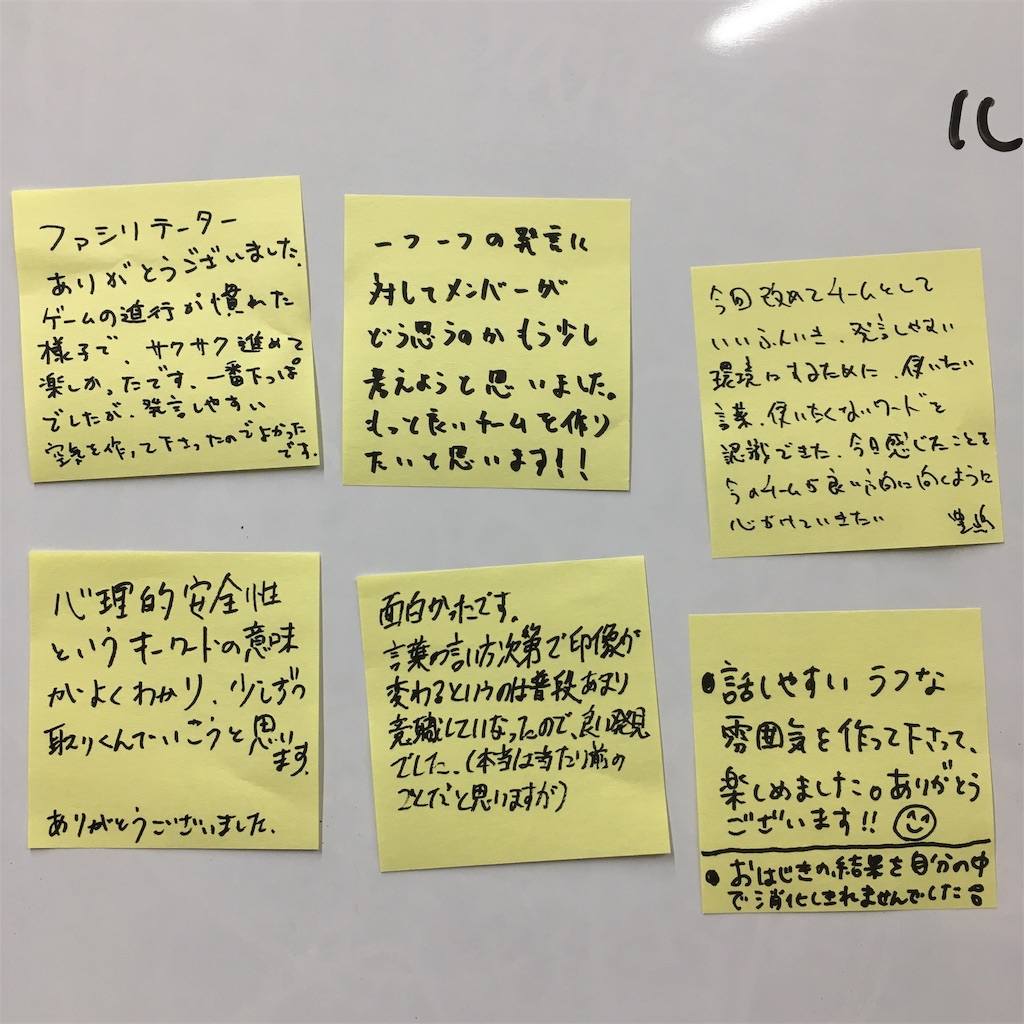 ファシリテーター
ありがとうございました。
ゲームの進行が慣れた
様子で、サクサク進めて
楽しかったです。一番下っぱ
でしたが、発言しやすい
空気を作って下さったのでよかった
です。
一つ一つの発言に
対してメンバーが
どう思うのかもう少し
考えようと思いました。
もっと良いチームを作り
たいと思います!!
今回改めてチームとして
いいふんいき、発言しやすい
環境にするために、使いたい
言葉、使いたくないワードを
認識できた。今日感じたことを
今のチームが良い方向に向くように
心がけていきたい
心理的安全性
というキーワードの意味
がよくわかり、少しずつ
取りくんでいこうと思い
ます。
ありがとうございました。
面白かったです。
言葉の言い方次第で印像が
変わるというのは普段あまり
意識していなったので、良い発見
でした。(本当は当たり前の
ことだと思いますが)
●話しやすい ラフな
雰囲気を作って下さって、
楽しめました。ありがとう
ございます!!
●おはじきの結果を自分の中
で消化しきれませんでした。